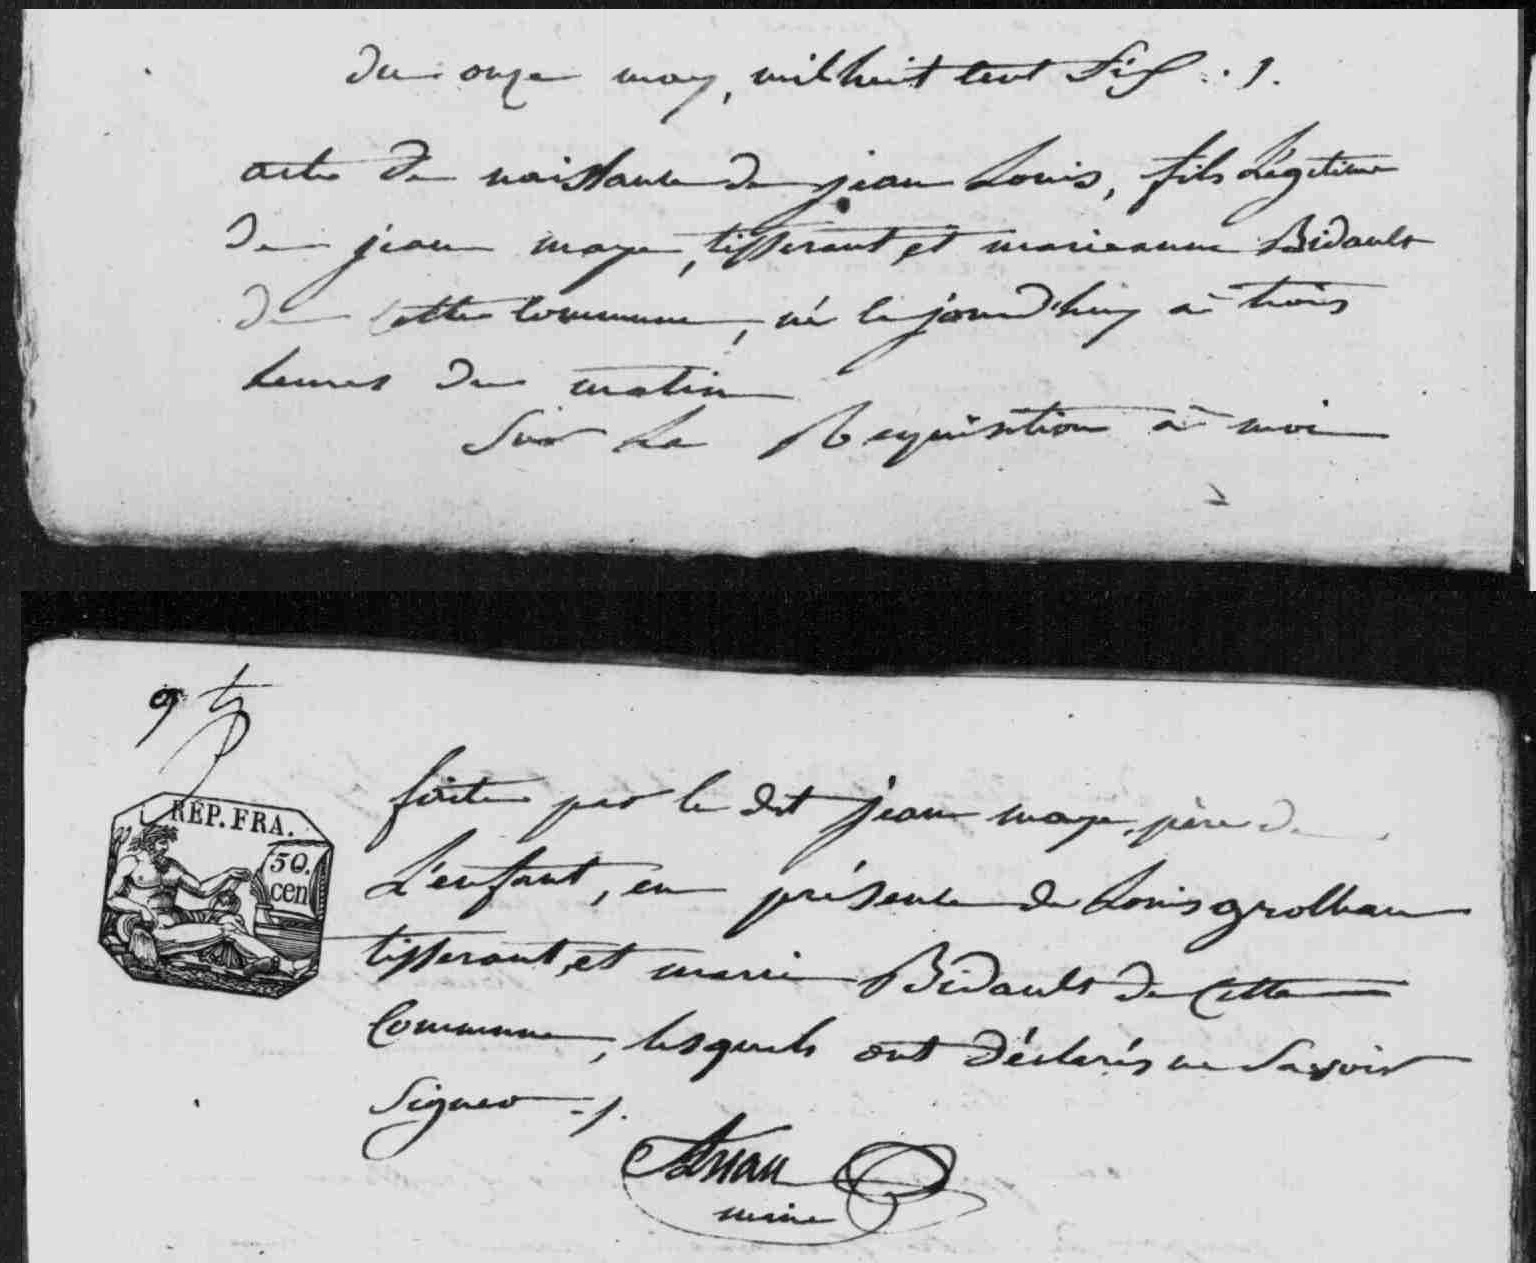 du onze may, mil huit cent six . 1.
acte de naissance de jean Louis, fils Légitime
de jean maye, tisserant, et marieanne Bidault
de cette Commune, né le jourd'huy à trois
heures du matin
Sur La Requisition à moi
RÉP. FRA.
50.
cen
faite par le dit jean maye, père de
L'enfant, en présence de Louis grolleau
tisserant, et marie Bidault de Cette
Commune, lesquels ont déclarés ne Savoir
Signer -1.
maire